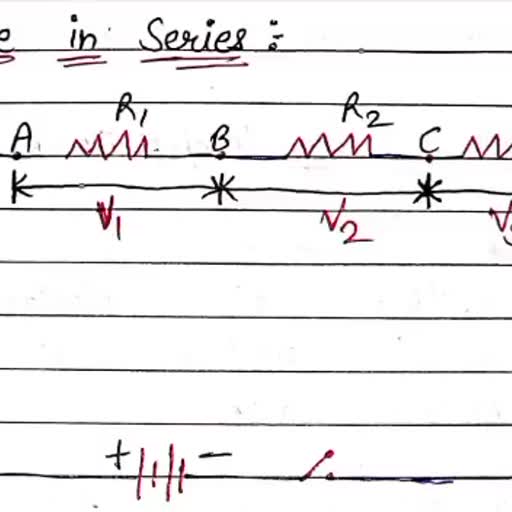 e in Series :
R₁ R₂
A B C
V₁ V₂ V₃
+ −